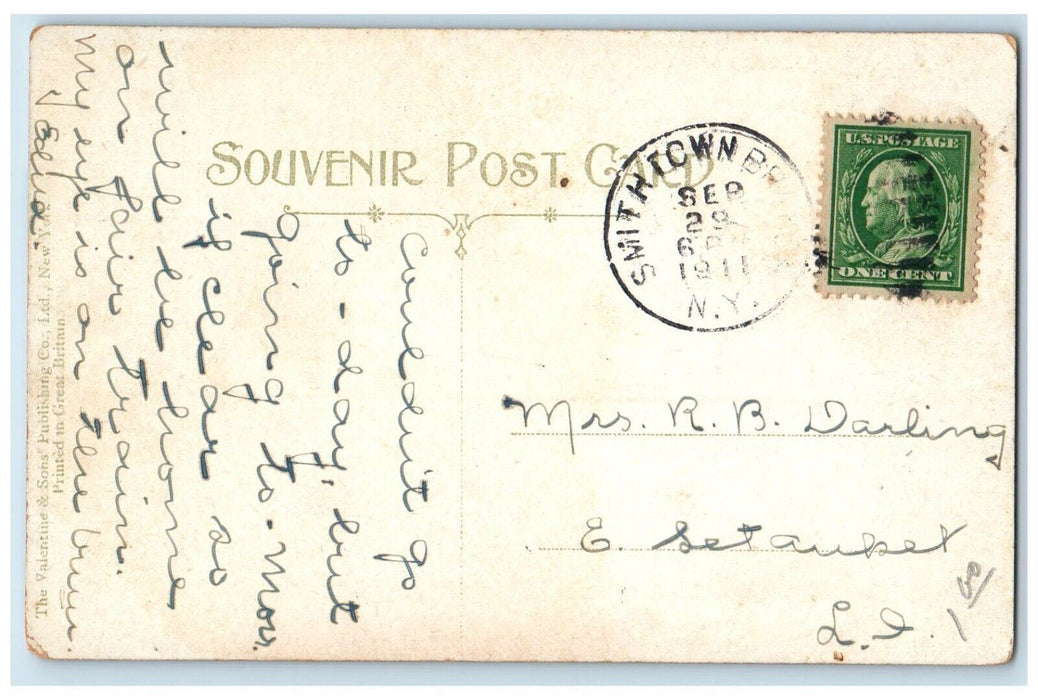 SOUVENIR POST CARD
SMITHTOWN BR
SEP
29
6
1911
N.Y.
U.S. POSTAGE
ONE CENT
Mrs. R. B. Darling
E. Setauket
L. I.
1 00
Couldn't go
to-day, but
going to-mor.
if clear so
will be home
on fair train.
My eye is on the bum
Elsie.
The Valentine & Sons' Publishing Co., Ltd., New York
Printed in Great Britain